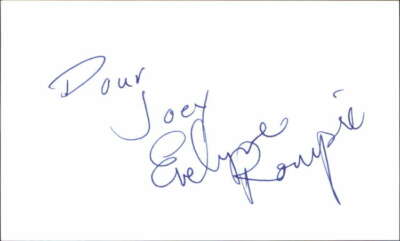 Pour
Joey
Evelyne
Rompré